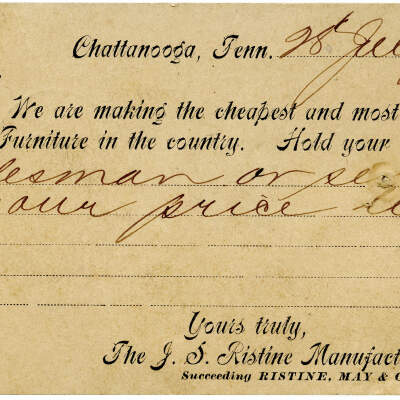 Chattanooga, Tenn. 28
We are making the cheapest and most
Furniture in the country. Hold your
lesman or se
our price
Yours truly,
The J. S. Ristine Manufact
Succeeding RISTINE, MAY & C